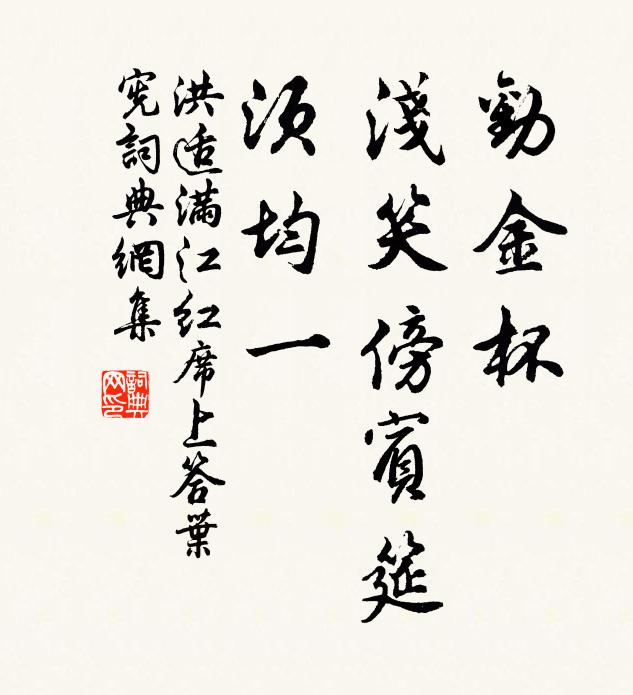 勸金杯
淺笑傍賓筵
須均一
洪适滿江紅席上答葉
憲詞典網集
詞典网印